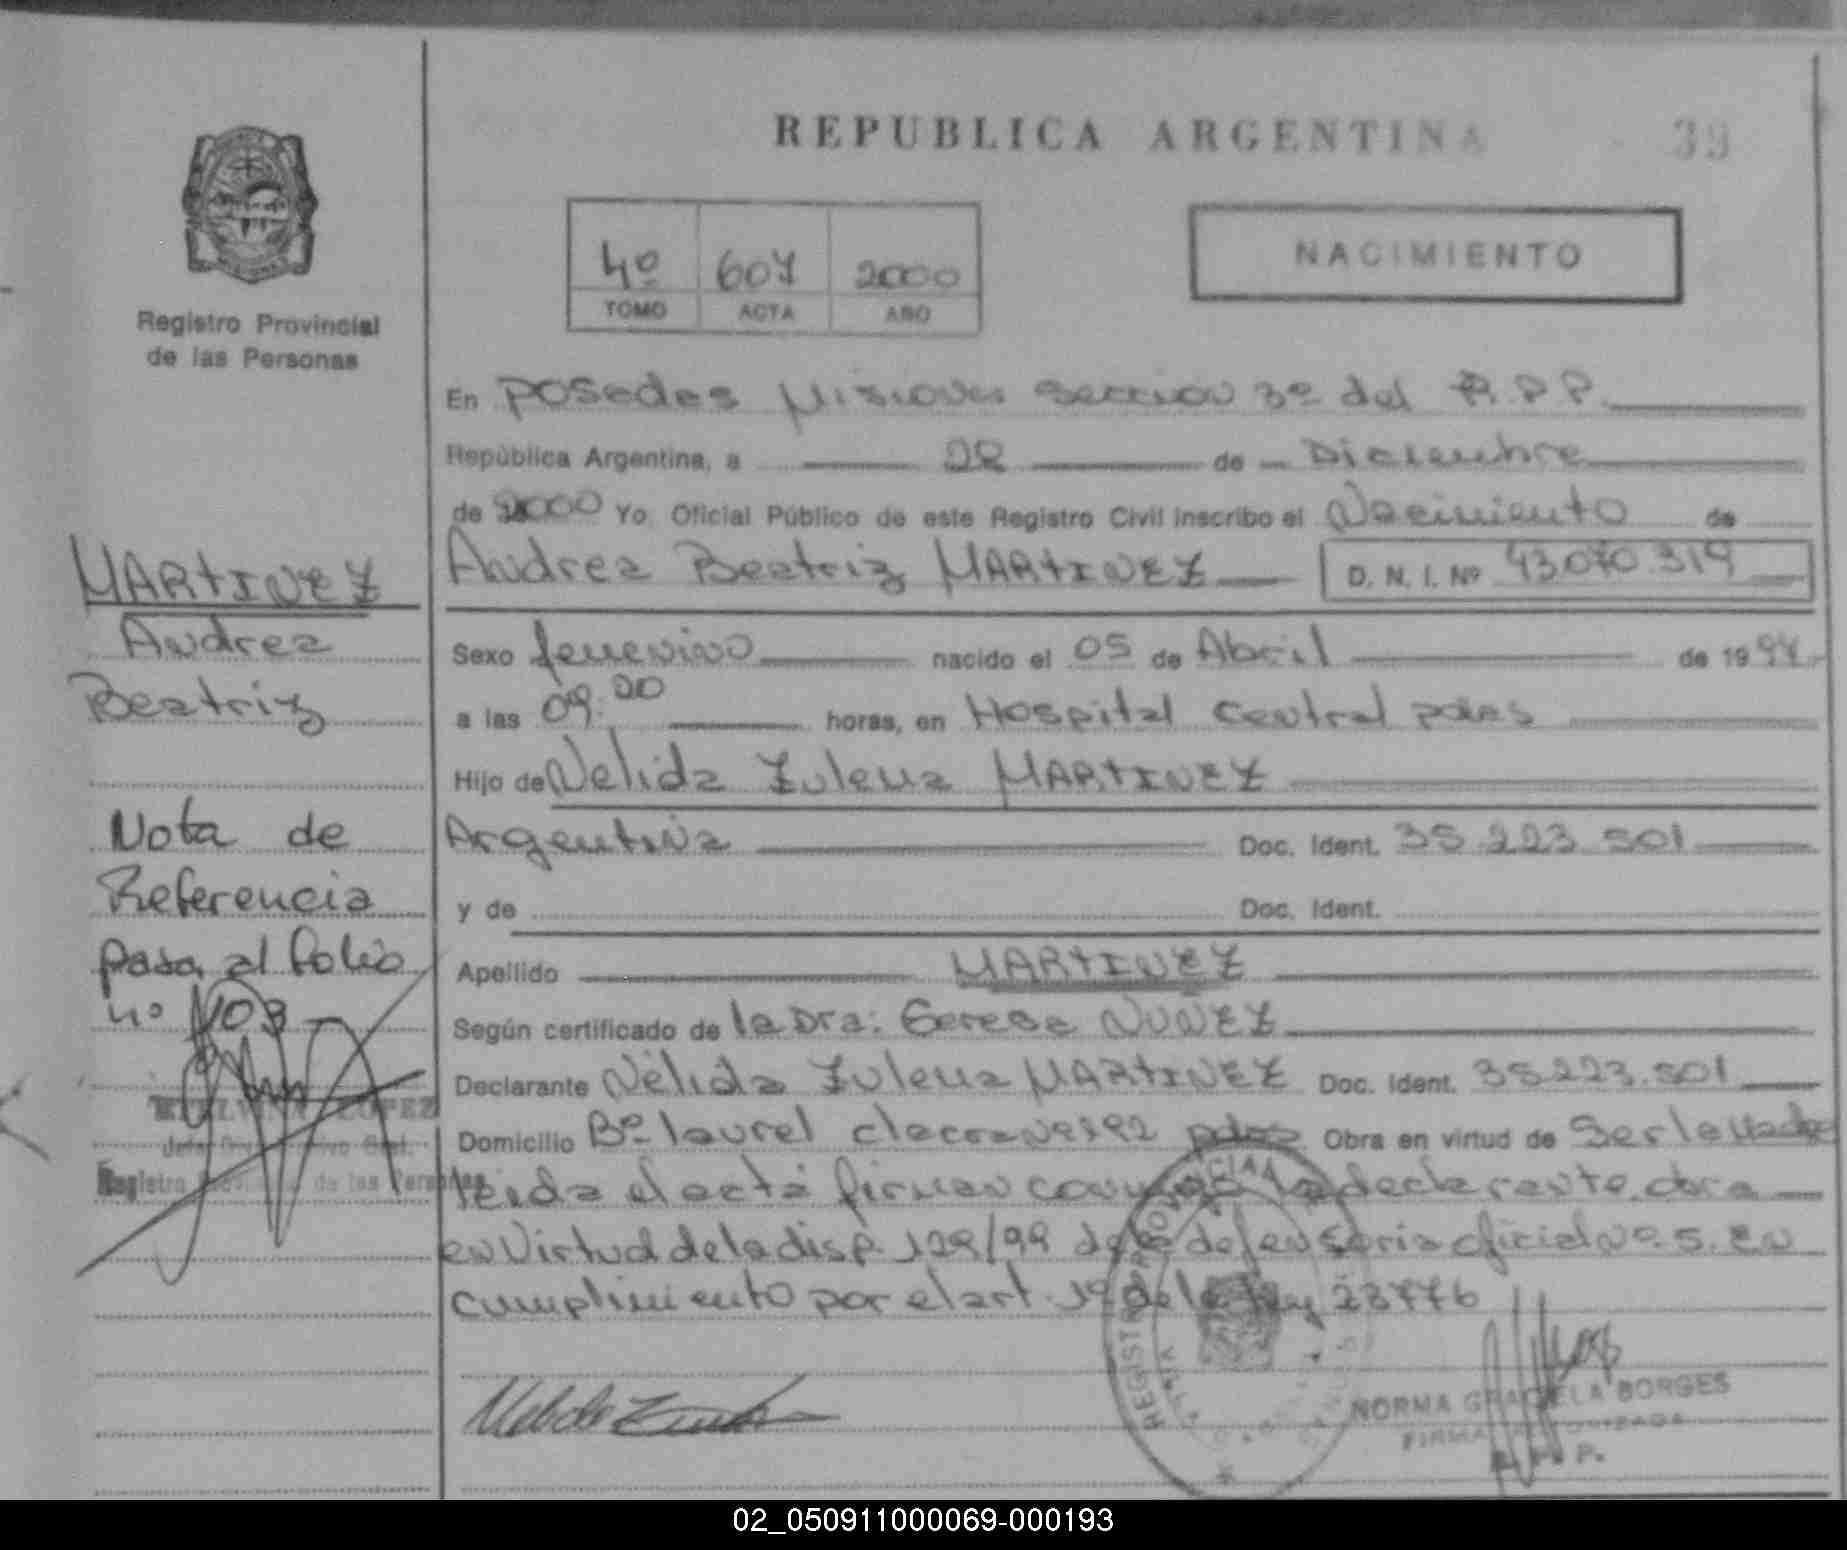 REPUBLICA ARGENTINA 39
4º 607 2000
TOMO ACTA AÑO
NACIMIENTO
Registro Provincial
de las Personas
En Posadas Misiones Seccion 3º del R.P.P.
República Argentina, a 28 de Diciembre
de 2000 Yo, Oficial Público de este Registro Civil inscribo el Nacimiento de
Andrea Beatriz MARTINEZ D. N. I. Nº 43.070.319
Sexo femenino nacido el 05 de Abril de 1994
a las 09:20 horas, en Hospital Central pdas
Hijo de Nelida Zulema MARTINEZ
Argentina Doc. Ident. 35.223.501
y de Doc. Ident.
Apellido MARTINEZ
Según certificado de la Dra: NUÑEZ
Declarante Nélida Zulema MARTINEZ Doc. Ident. 35.223.501
Domicilio Bº laurel pdas Obra en virtud de Ser la Madre
leida el acta firman conmigo la declarante. obra
en Virtud de la disp. 129/99 de la defensoria oficial nº. 5. En
cumplimiento por el art. 1º de la ley 23776
MARTINEZ
Andrea
Beatriz
Nota de
Referencia
pasa al folio
nº 103
LOPEZ
Registro de las Personas
REGISTRO PROVINCIAL
NORMA GRACIELA BORGES
FIRMA AUTORIZADA
R. P. P.
02_050911000069-000193